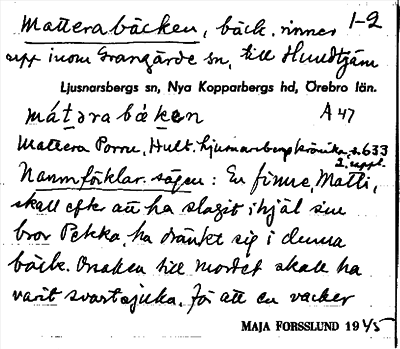 Matterabäcken, bäck. rinner 1-2
upp inom Grangärde sn, till Hundtjärn
Ljusnarsbergs sn, Nya Kopparbergs hd, Örebro län.
mátərabäkən A 47
Mattera Porru, Hult. hjumarbergskrönika s. 633
2. uppl.
Namnförklar. sägen: En finne, Matti,
skall efter att ha slagit ihjäl sin
bror Pekka, ha dränkt sig i denna
bäck. Orsaken till mordet skall ha
varit svartsjuka. För att en vacker
MAJA FORSSLUND 1945